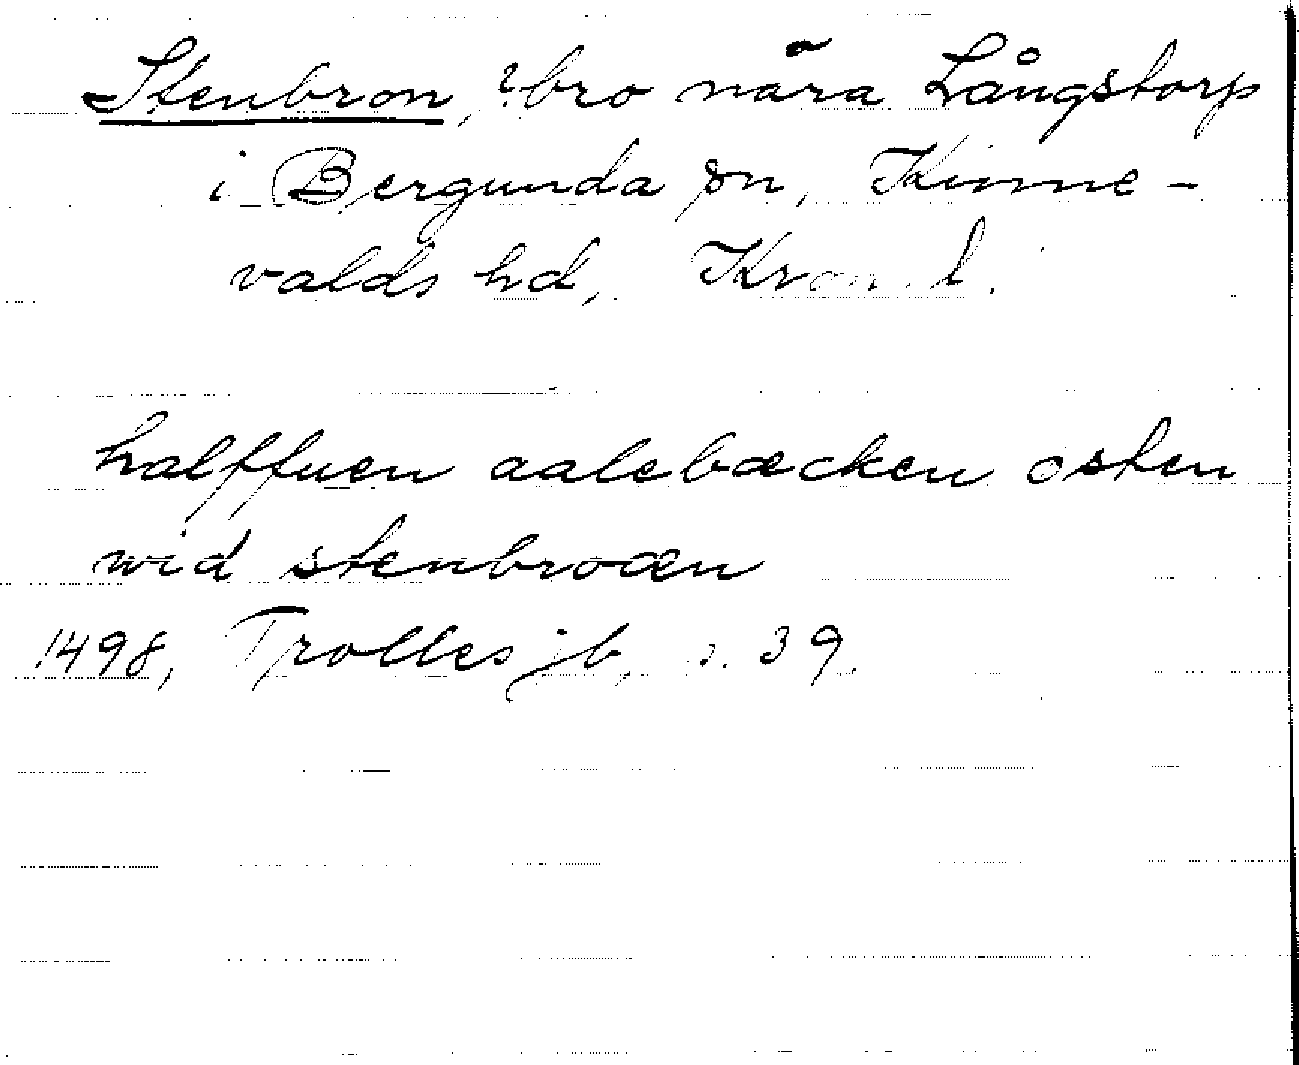 Stenbron, ?bro nära Långstorp
i Bergunda sn, Kinne-
valds hd, Kron. l.
halffuen aalebæcken osten
wid stenbroæn
1498, Trolles jb, s. 39.